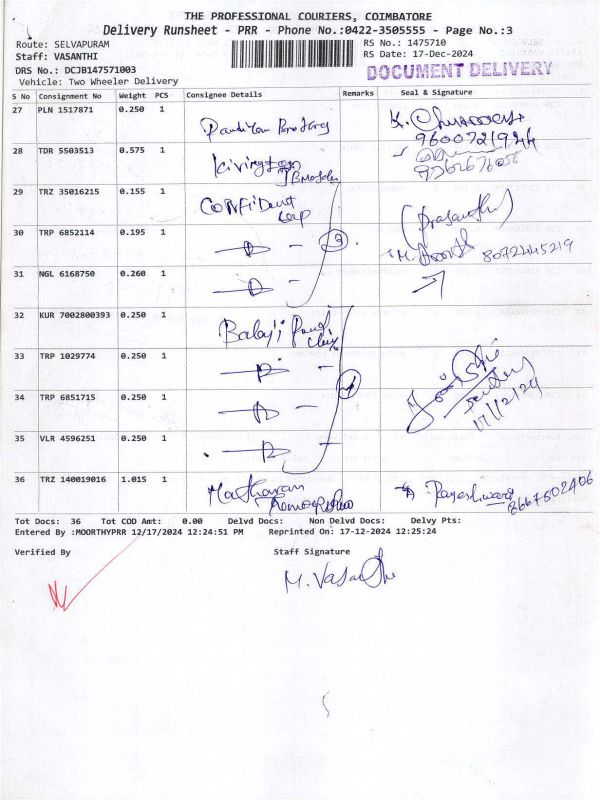 THE PROFESSIONAL COURIERS, COIMBATORE
Delivery Runsheet - PRR - Phone No.:0422-3505555 - Page No.:3
Route: SELVAPURAM RS No.: 1475710
Staff: VASANTHI RS Date: 17-Dec-2024
DRS No.: DCJB147571003 DOCUMENT DELIVERY
Vehicle: Two Wheeler Delivery
S No Consignment No Weight PCS Consignee Details Remarks Seal & Signature
27 PLN 1517871 0.250 1
9600721944
28 TDR 5503513 0.575 1
29 TRZ 35016215 0.155 1 Confident
(Prasanth)
30 TRP 6852114 0.195 1 3 8072445219
31 NGL 6168750 0.260 1
32 KUR 7002800393 0.250 1 Balaji
33 TRP 1029774 0.250 1
34 TRP 6851715 0.250 1 4 17/12/24
35 VLR 4596251 0.250 1
36 TRZ 140019016 1.015 1 Rajeshwari 8667502406
Tot Docs: 36 Tot COD Amt: 0.00 Delvd Docs: Non Delvd Docs: Delvy Pts:
Entered By :MOORTHYPRR 12/17/2024 12:24:51 PM Reprinted On: 17-12-2024 12:25:24
Verified By Staff Signature
M. Vasanthi